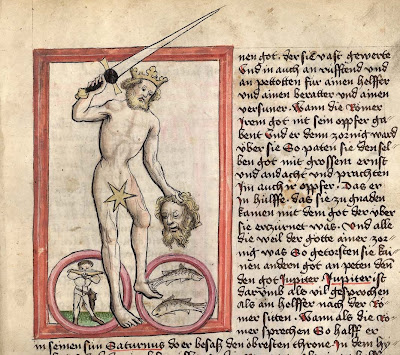 nen got. der sich vast gewerte
Und in auch an rufftend und
an pettotten für ainen helffer
und ainen beratter und ainen
versuner. Wann die Römer
Irem got mit sein opffer ga
bent Und er denn zornig ward
über sie So paten sie den sel
ben got mit grossem ernst
und andacht und prachten
Im auch ir opffer. Das er
in hülffe. das sie zu gnaden
kamen mit dem got der über
sie erzürnet was. Und alle
die weil der gotte ainer zor
nig was So getorsten sie kai
nen andern got an peten denn
den got Jupiter Jupiter ist
darumb als vil gesprochen
als ain helffer nach der Rö
mer sitten. Wann als die Rö
mer sprechen So halff er
in seinen sun Saturnus do er besaß den obresten throne. In dem